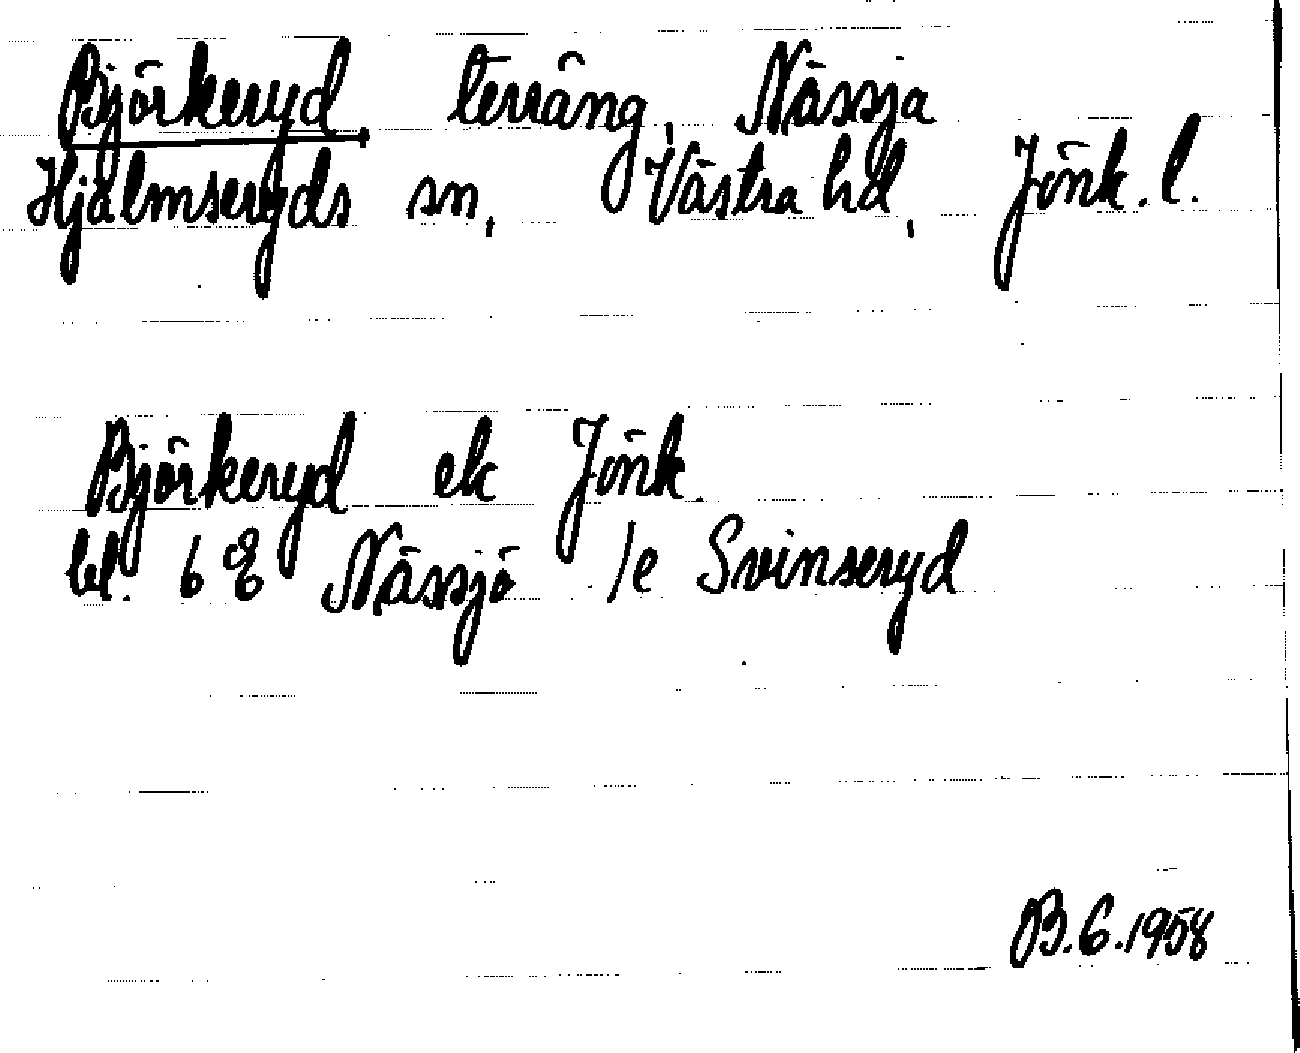 Björkeryd terräng, Nässja
Hjälmseryds sn, Västra hd, Jönk. l.
Björkeryd ek Jönk.
bl. 6 E Nässjö /e Svinseryd
B.G.1958